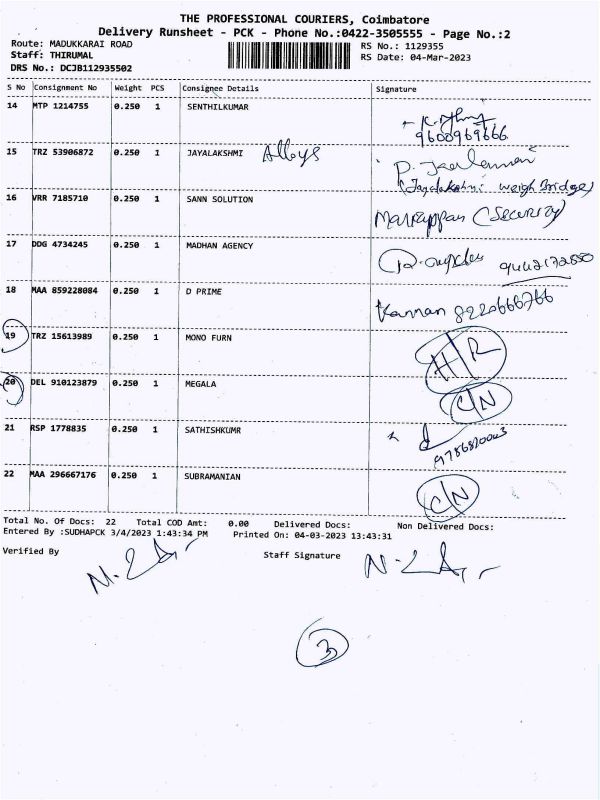 THE PROFESSIONAL COURIERS, Coimbatore
Delivery Runsheet - PCK - Phone No.:0422-3505555 - Page No.:2
Route: MADUKKARAI ROAD
Staff: THIRUMAL
DRS No.: DCJB112935502
RS No.: 1129355
RS Date: 04-Mar-2023
S No Consignment No Weight PCS Consignee Details Signature
14 MTP 1214755 0.250 1 SENTHILKUMAR
9600969666
15 TRZ 53906872 0.250 1 JAYALAKSHMI Alloys
(Jayalakshmi weigh Bridge)
16 VRR 7185710 0.250 1 SANN SOLUTION
(Security)
17 DDG 4734245 0.250 1 MADHAN AGENCY
18 MAA 859228084 0.250 1 D PRIME
Kannan 8220666766
19 TRZ 15613989 0.250 1 MONO FURN H/R
20 DEL 910123879 0.250 1 MEGALA C/N
21 RSP 1778835 0.250 1 SATHISHKUMR
22 MAA 296667176 0.250 1 SUBRAMANIAN C/N
Total No. Of Docs: 22 Total COD Amt: 0.00 Delivered Docs: Non Delivered Docs:
Entered By :SUDHAPCK 3/4/2023 1:43:34 PM Printed On: 04-03-2023 13:43:31
Verified By Staff Signature
3